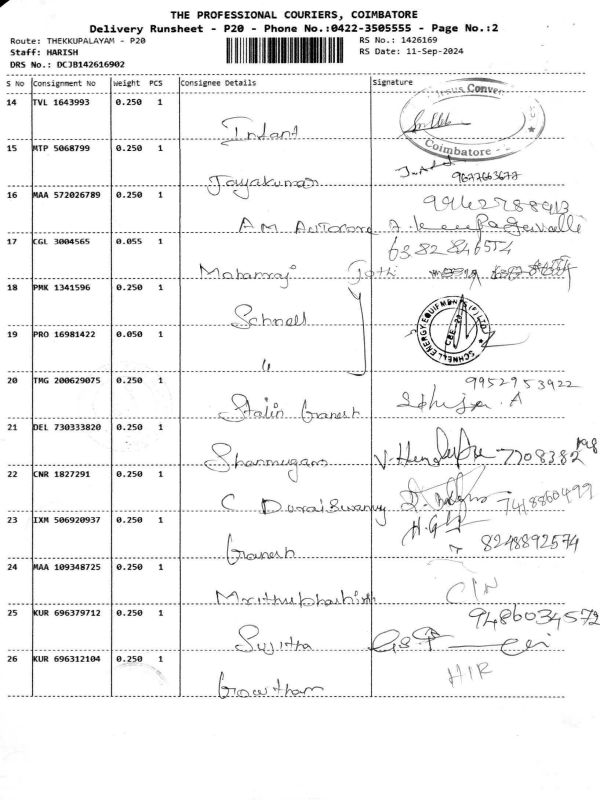 THE PROFESSIONAL COURIERS, COIMBATORE
Delivery Runsheet - P20 - Phone No.:0422-3505555 - Page No.:2
Route: THEKKUPALAYAM - P20 RS No.: 1426169
Staff: HARISH RS Date: 11-Sep-2024
DRS No.: DCJB142616902
S No Consignment No Weight PCS Consignee Details Signature
14 TVL 1643993 0.250 1
Infant
Coimbatore
15 MTP 5068799 0.250 1
Jayakumar
16 MAA 572026789 0.250 1
A.M. Autocore
17 CGL 3004565 0.055 1
6382846554
Mohanraj Jothi
18 PMK 1341596 0.250 1
Schnell
SCHNELL ENERGY EQUIPMENTS (P) LTD
CBE-20
19 PRO 16981422 0.050 1
"
20 TMG 200629075 0.250 1 9952953922
Stalin Ganesh
21 DEL 730333820 0.250 1
Shanmugam
22 CNR 1827291 0.250 1
C Duraiswamy 7418860499
23 IXM 506920937 0.250 1
Ganesh 8248892574
24 MAA 109348725 0.250 1
25 KUR 696379712 0.250 1 9486034572
Sujitha
26 KUR 696312104 0.250 1 HIR
Gowtham